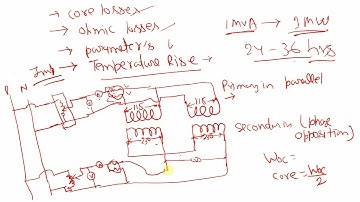 → core losses
→ ohmic losses
→ parameter's
Imp → Temperature Rise -
1 MVA → 1 MW
24 - 36 hrs
P N
115
115
Primary in parallel
230
230
secondary in (phase opposition)
Woc =
core = Woc/2